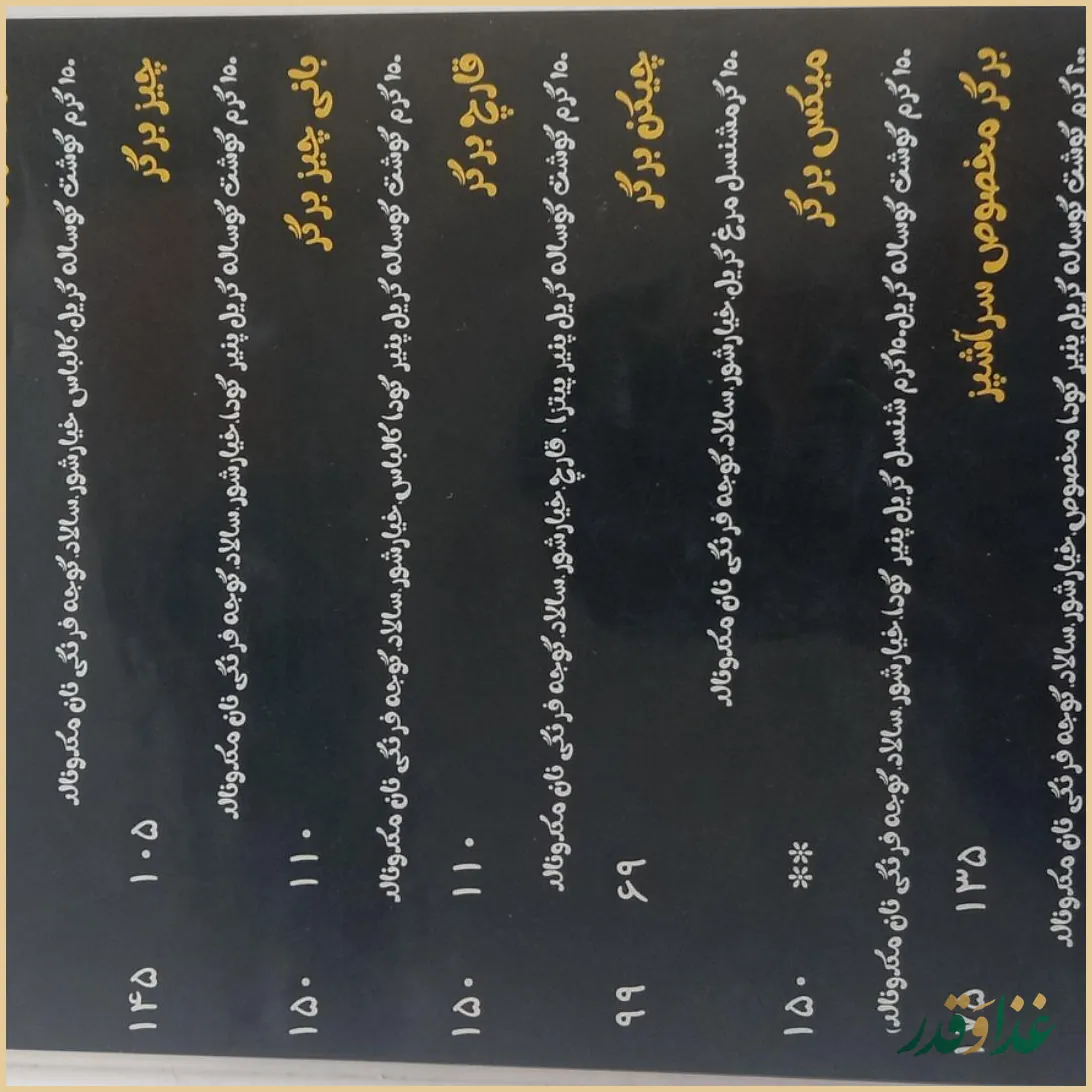 ۱۵۰ گرم گوشت گوساله گریل.کالباس خیارشور.سالاد.گوجه فرنگی نان مکدونالد
چیز برگر ۱۰۵ ۱۴۵
۱۵۰ گرم گوشت گوساله گریل پنیر گودا.خیارشور.سالاد.گوجه فرنگی نان مکدونالد
بانی چیز برگر ۱۱۰ ۱۵۰
۱۵۰ گرم گوشت گوساله گریل پنیر گودا کالباس.خیارشور.سالاد.گوجه فرنگی نان مکدونالد
قارچ برگر ۱۱۰ ۱۵۰
۱۵۰ گرم گوشت گوساله گریل پنیر پیتزا . قارچ.خیارشور.سالاد.گوجه فرنگی نان مکدونالد
چیکن برگر ۶۹ ۹۹
۱۵۰ گرمشنسل مرغ گریل.خیارشور.سالاد.گوجه فرنگی نان مکدونالد
میکس برگر ** ۱۵۰
۱۵۰ گرم گوشت گوساله گریل.۱۵۰گرم شنسل گریل پنیر گودا.خیارشور.سالاد.گوجه فرنگی نان مکدونالد)
برگر مخصوص سرآشپز ۱۳۵
گرم گوشت گوساله گریل پنیر گودا مخصوص.خیارشور.سالاد.گوجه فرنگی نان مکدونالد
غذا و قدر